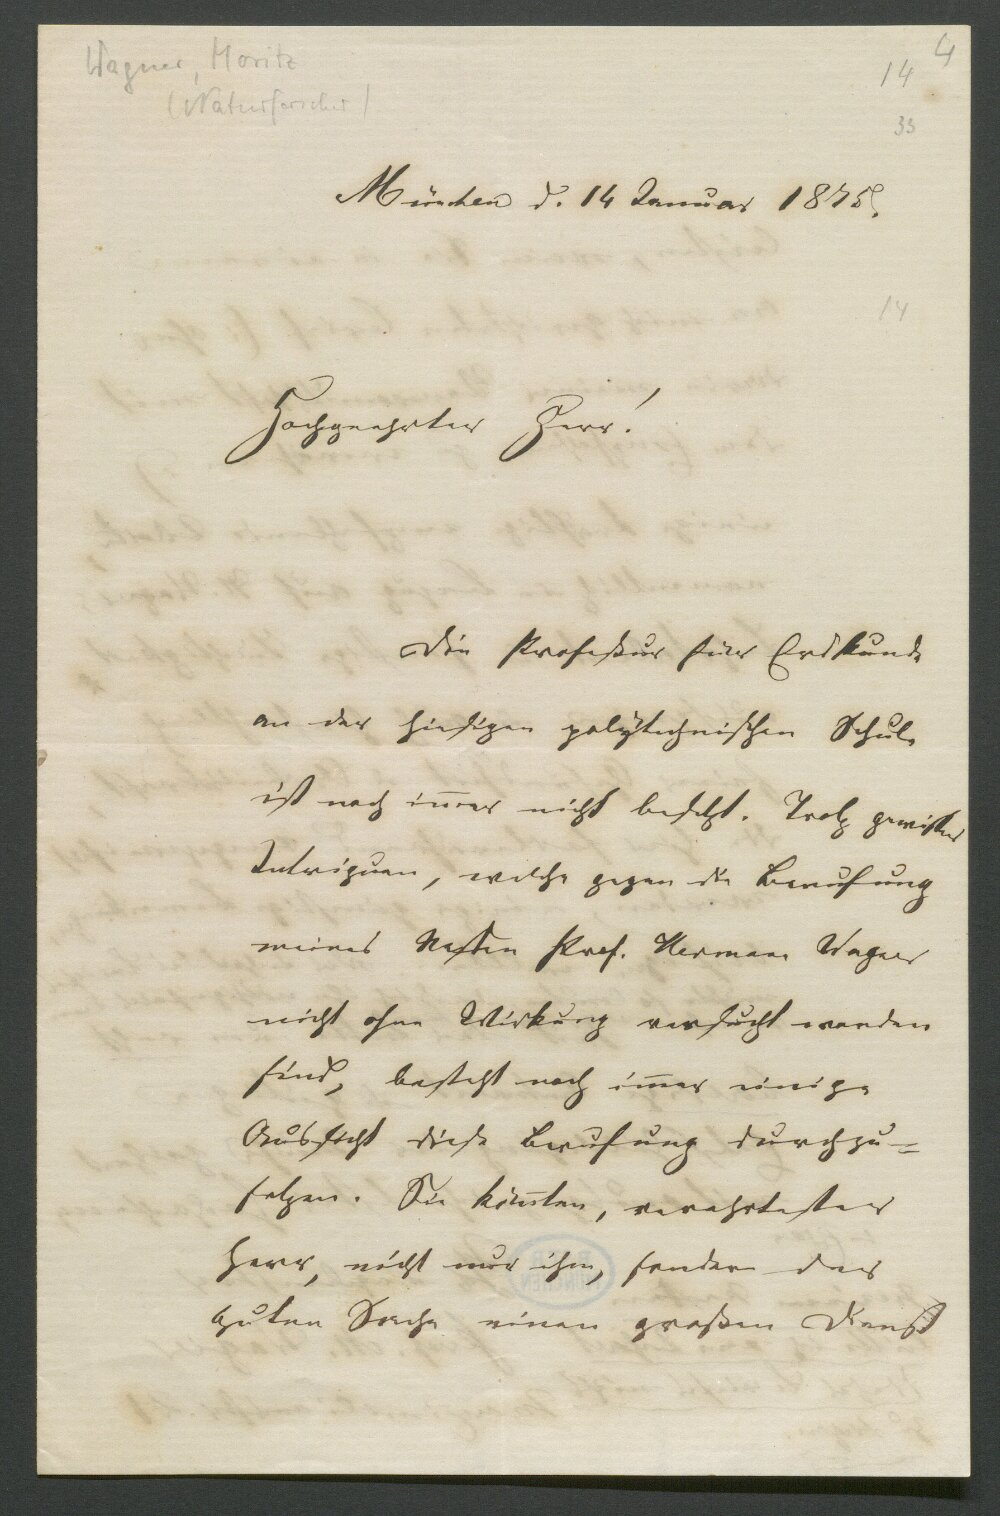 Wagner, Moritz
(Naturforscher)
4
14
33
München d. 14 Januar 1875.
14
Hochgeehrter Herr!
Die Profeßur für Erdkunde
an der hiesigen polytechnischen Schule
ist noch im̅er nicht besetzt. Trotz gewisser
Intriguen, welche gegen die Berufung
meines Neffen Prof. Hermann Wagner
nicht ohne Wirkung versucht worden
sind, besteht noch im̅er einige
Aussicht diese Berufung durchzu=
setzen. Sie kön̅ten, verehrtester
Herr, nicht nur ihm, sondern der
guten Sache einen großen Dienst